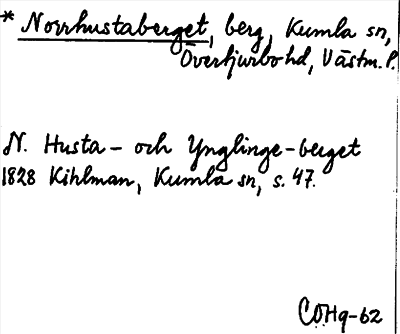 * Norrhustaberget, berg, Kumla sn,
Övertjurbo hd, Västm. l.
N. Husta- och Ynglinge-berget
1828 Kihlman, Kumla sn, s. 47.
CÖHg-62